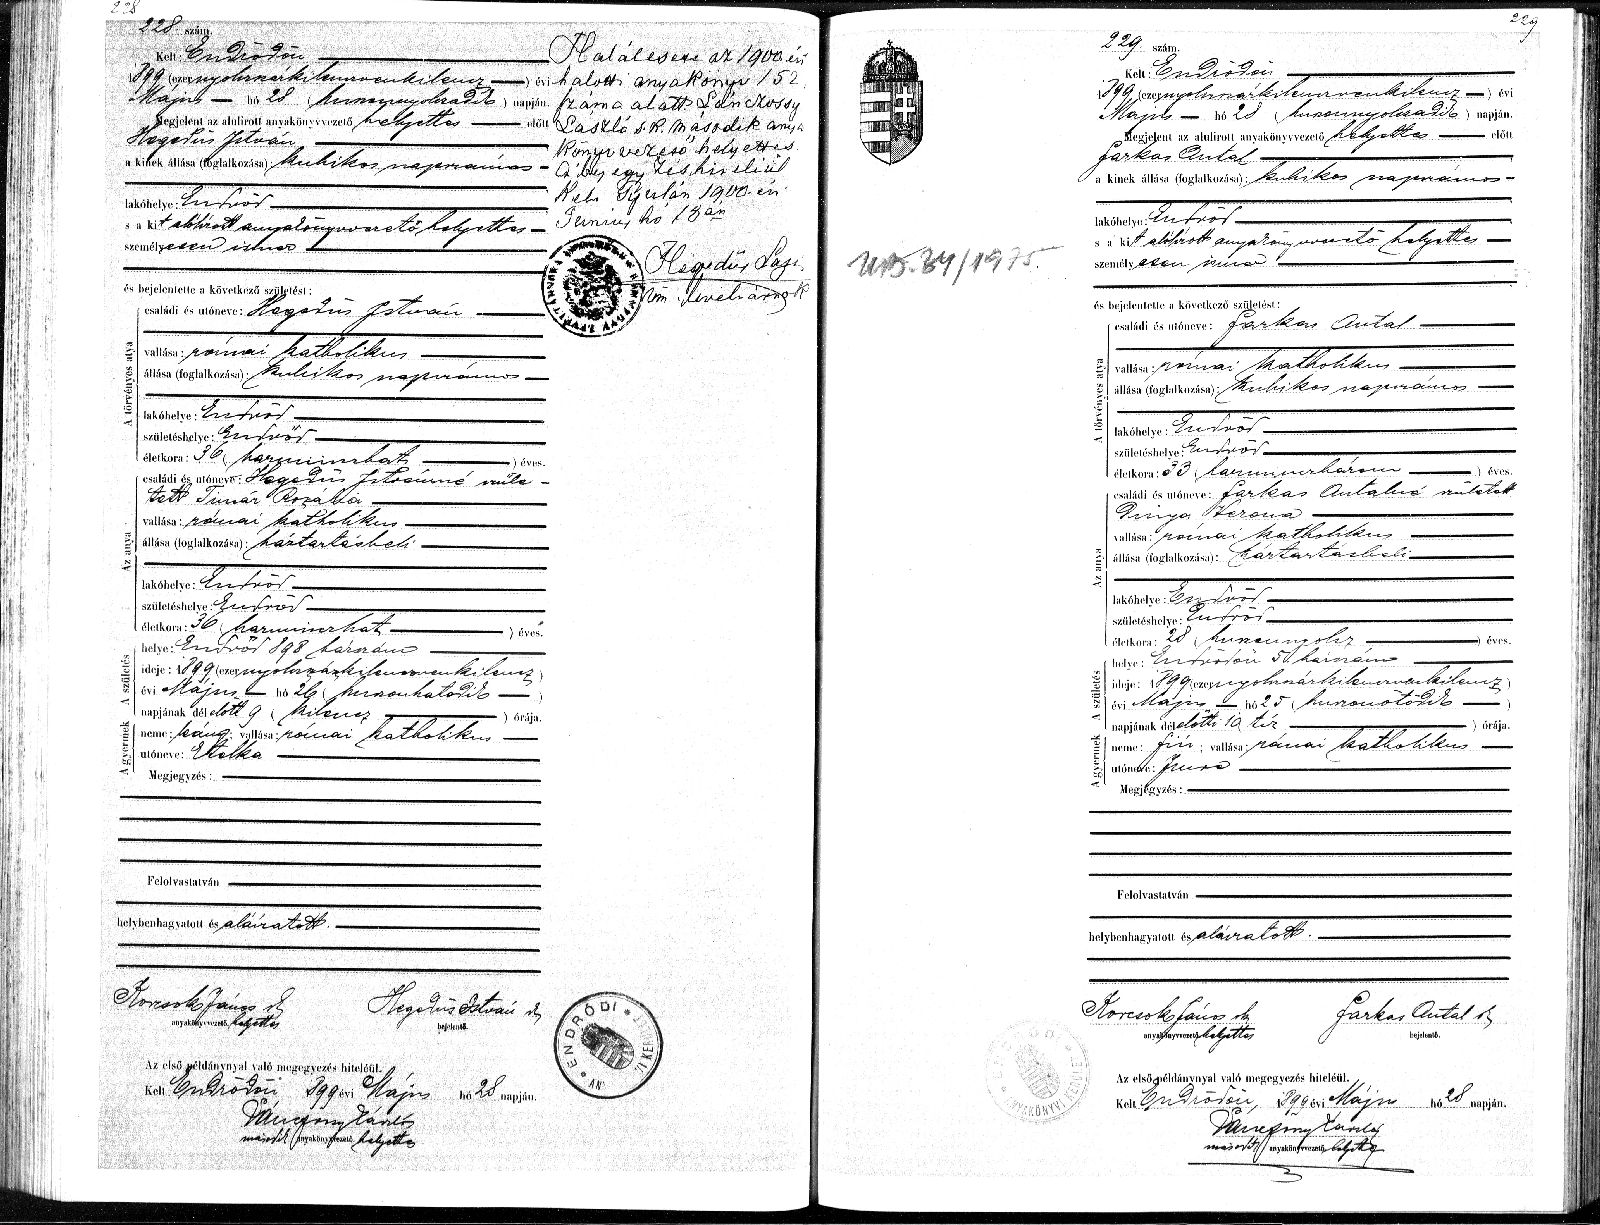 228
228 szám.
Kelt: Endrődön
1899 (ezernyolczszázkilenczvenkilencz) évi
Május hó 28 (huszonnyolczadik) napján.
Megjelent az alulirott anyakönyvvezető helyettes előtt
Hegedüs István
a kinek állása (foglalkozása): kubikos napszámos
lakóhelye: Endrőd
s a kit alólirott anyakönyvvezető helyettes
személyesen ismer
és bejelentette a következő születést:
A törvényes atya
családi és utóneve: Hegedüs István
vallása: római katholikus
állása (foglalkozása): kubikos napszámos
lakóhelye: Endrőd
születéshelye: Endrőd
életkora: 36 (harminczhat) éves.
Az anya
családi és utóneve: Hegedüs Istvánné szüle-
tett Timár Rozália
vallása: római katholikus
állása (foglalkozása): háztartásbeli
lakóhelye: Endrőd
születéshelye: Endrőd
életkora: 36 (harminczhat) éves.
A születés
helye: Endrőd 898 házszám
ideje: 1899 (ezernyolczszázkilenczvenkilencz)
évi Május hó 26 (huszonhatodik)
napjának délelőtt 9 (kilencz) órája.
A gyermek
neme: leány; vallása: római katholikus
utóneve: Etelka
Megjegyzés:
Felolvastatván
helybenhagyatott és aláiratott.
Korcsok János sk
anyakönyvvezető helyettes
Hegedüs István sk
bejelentő.
Az első példánynyal való megegyezés hiteléül.
Kelt Endrődön 1899 évi Május hó 28 napján.
másod anyakönyvvezető helyettes
ENDRŐDI
Halálesete az 1900 évi
halotti anyakönyv 152.
száma alatt Lánczossy
László s.k. második anya
könyvvezető helyettes
egyezés hiteléül
Kelt Gyulán 1900 évi
Junius hó 13 án
Hegedüs
229
229 szám.
Kelt: Endrődön
1899 (ezernyolczszázkilenczvenkilencz) évi
Május hó 28 (huszonnyolczadik) napján.
Megjelent az alulirott anyakönyvvezető helyettes előtt
Farkas Antal
a kinek állása (foglalkozása): kubikos napszámos
lakóhelye: Endrőd
s a kit alólirott anyakönyvvezető helyettes
személyesen ismer
és bejelentette a következő születést:
A törvényes atya
családi és utóneve: Farkas Antal
vallása: római katholikus
állása (foglalkozása): kubikos napszámos
lakóhelye: Endrőd
születéshelye: Endrőd
életkora: 33 (harminczhárom) éves.
Az anya
családi és utóneve: Farkas Antalné született
Dinya Verona
vallása: római katholikus
állása (foglalkozása): háztartásbeli
lakóhelye: Endrőd
születéshelye: Endrőd
életkora: 28 (huszonnyolcz) éves.
A születés
helye: Endrődön 51 házszám
ideje: 1899 (ezernyolczszázkilenczvenkilencz)
évi Május hó 25 (huszonötödik)
napjának délelőtti 10 tiz órája.
A gyermek
neme: fiu; vallása: római katholikus
utóneve: Imre
Megjegyzés:
Felolvastatván
helybenhagyatott és aláiratott.
Korcsok János sk
anyakönyvvezető helyettes
Farkas Antal sk
bejelentő.
Az első példánynyal való megegyezés hiteléül.
Kelt Endrődön, 1899 évi Május hó 28 napján.
másod anyakönyvvezető helyettes